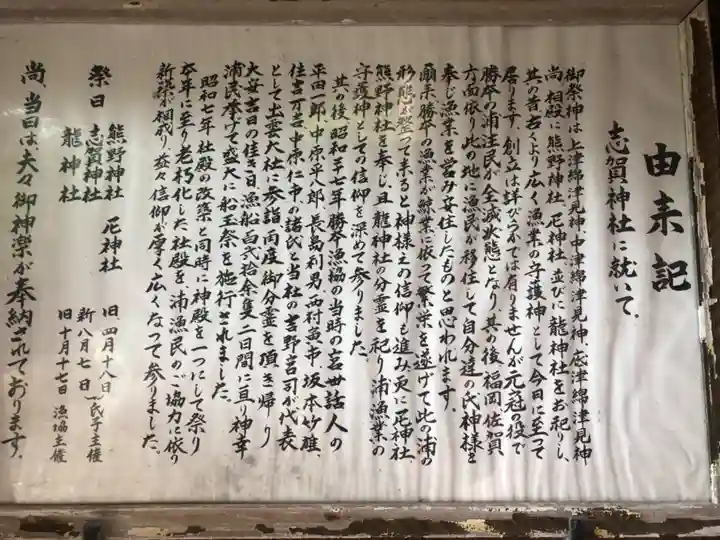 由来記
志賀神社に就いて、
御祭神は上津綿津見神、中津綿津見神、底津綿津見神
尚、相殿に熊野神社、厄神社並びに龍神社をお祀りし、
其の昔古くより広く漁業の守護神として今日に至って
居ります。創立は詳びらかでは有りませんが元寇の役で
勝本の浦注民が全滅状態となり、其の後福岡、佐賀、
方面依り此の地に漁民が移住して自分達の氏神様を
奉じ漁業を営み安住したものと思われます。
爾来勝本の漁業が鯨業に依って繁栄を遂げて此の浦の
形態が整って来ると神様えの信仰も進み更に厄神社、
熊野神社を奉し、且、龍神社の分霊を祀り浦漁業の
守護神としての信仰を深めて参りました。
其の後昭和三七年勝本漁協の当時の宮世話人の
平田一郎、中原平八郎、長島利男、西村寅市、坂本妙雄、
住吉万吉、中原仁中、の諸氏と当社の吉野宮司が代表
として出雲大社に参詣、両度御分霊を頂き帰り
大安吉日の佳き日、漁船百弐拾余隻二日間に亘り神幸
浦民挙げて盛大に船玉祭を施行されました。
昭和七年社殿の改築と同時に神殿を一つにして祭り
本年に至り老朽化した社殿を、浦漁民のご協力に依り
新築が相成り、益々信仰が厚く広くなって参りました。
祭日 熊野神社 厄神社 旧、四月十八日
志賀神社 新八月七日 氏子主催
龍神社 旧十月十七日 漁協主催
尚、当日は、夫々御神楽が奉納されております。